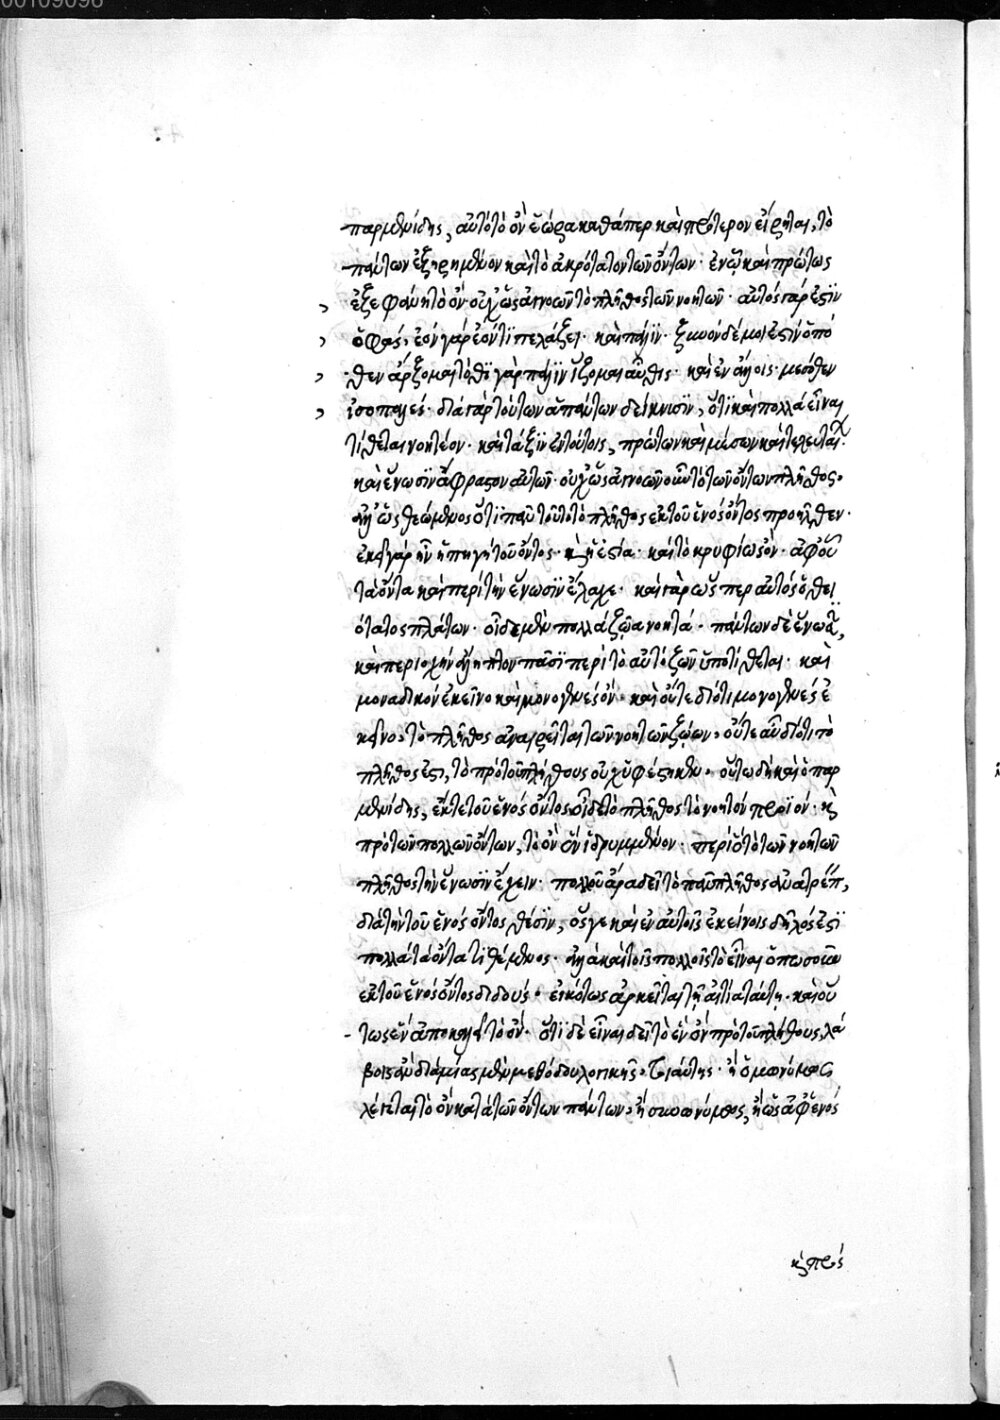 00109098
παρμενίδης, αὐτὸ τὸ ὂν ἑώρα καθάπερ καὶ πρότερον εἴρηται, τὸ
πάντων ἐξῃρημένον καὶ τὸ ἀκρότατον τῶν ὄντων· ἐν ᾧ καὶ πρώτως
ἐξεφάνη τὸ ὄν· οὐχ ὡς ἀγνοῶν τὸ πλῆθος τῶν νοητῶν· αὐτὸς γάρ ἐστιν
ὁ φάς, ἐὸν γὰρ ἐόντι πελάζει· καὶ πάλιν· ξυνὸν δέ μοι ἐστὶν ὁπό
θεν ἄρξομαι τόθι γὰρ πάλιν ἵξομαι αὖθις· καὶ ἐν ἄλλοις· μεσόθεν
ἰσοπαλές· διὰ γὰρ τούτων ἁπάντων δείκνυσιν, ὅτι καὶ πολλὰ εἶναι
τίθεται νοητέον· καὶ τάξιν ἐν τούτοις, πρώτων καὶ μέσων καὶ τελευταί·
καὶ ἕνωσιν ἄφραστον αὐτῶν· οὐχ ὡς ἀγνοῶν οὖν τὸ τῶν ὄντων πλῆθος·
ἀλλ' ὡς θεώμενος ὅτι πᾶν τοῦτο τὸ πλῆθος ἐκ τοῦ ἑνὸς ὄντος προῆλθεν·
ἐκεῖ γὰρ ἦν ἡ πηγὴ τοῦ ὄντος· κ ἡ ἑστία· καὶ τὸ κρυφίως ὄν· ἀφ' οὗ
τὰ ὄντα καὶ περὶ τὴν ἕνωσιν ἔλαχε· καὶ γὰρ ὥσπερ αὐτὸς ὁ θει
ότατος πλάτων· οἶδε μὲν πολλὰ ζῷα νοητά· πάντων δὲ ἑνωτ,
καὶ περιοχὴν ἀλη πλον πᾶσι περὶ τὸ αὐτόζωον ὑποτίθεται· καὶ
μοναδικὸν ἐκεῖνο καὶ μονογενὲς ὄν· καὶ οὔτε διότι μονογενὲς ἐ
κεῖνο, τὸ πλῆθος ἀναιρεῖται τῶν νοητῶν ζῴων, οὔτε αὖ διότι τὸ
πλῆθος ἐστι, τὸ πρὸ τοῦ πλήθους οὐχ ὑφέστηκεν· οὕτω δὴ καὶ ὁ παρ
μενίδης, ἔκ τε τοῦ ἑνὸς ὄντος οἶδε τὸ πλῆθος τὸ νοητὸν προϊόν· κ
πρὸ τῶν πολλῶν ὄντων, τὸ ὂν ἓν ἱδρυμένον· περὶ ὃ τὸ τῶν νοητῶν
πλῆθος τὴν ἕνωσιν ἔχειν· πολλοῦ ἄρα δεῖ τὸ πᾶν πλῆθος ἀνατρέπ,
διὰ τὴν τοῦ ἑνὸς ὄντος θέσιν, ὅς γε καὶ ἐν αὐτοῖς ἐκείνοις δῆλός ἐστι
πολλὰ τὰ ὄντα τιθέμενος· ἀλλὰ καὶ τοῖς πολλοῖς τὸ εἶναι ὁπωσοῦν
ἐκ τοῦ ἑνὸς ὄντος διδούς· εἰκότως ἀρκεῖται τῇ αἰτίᾳ ταύτῃ· καὶ οὕ
τως ἓν ἀποκαλεῖ τὸ ὄν· ὅτι δὲ εἶναι δεῖ τὸ ἓν ὂν πρὸ τοῦ πλήθους, λά
βοις ἂν διὰ μιᾶς μὲν μεθόδου λογικῆς τοιαύτης· ἢ ὁμωνύμως
λέγεται τὸ ὂν κατὰ τῶν ὄντων πάντων, ἢ συνωνύμως, ἢ ὡς ἀφ' ἑνός
κ πρός